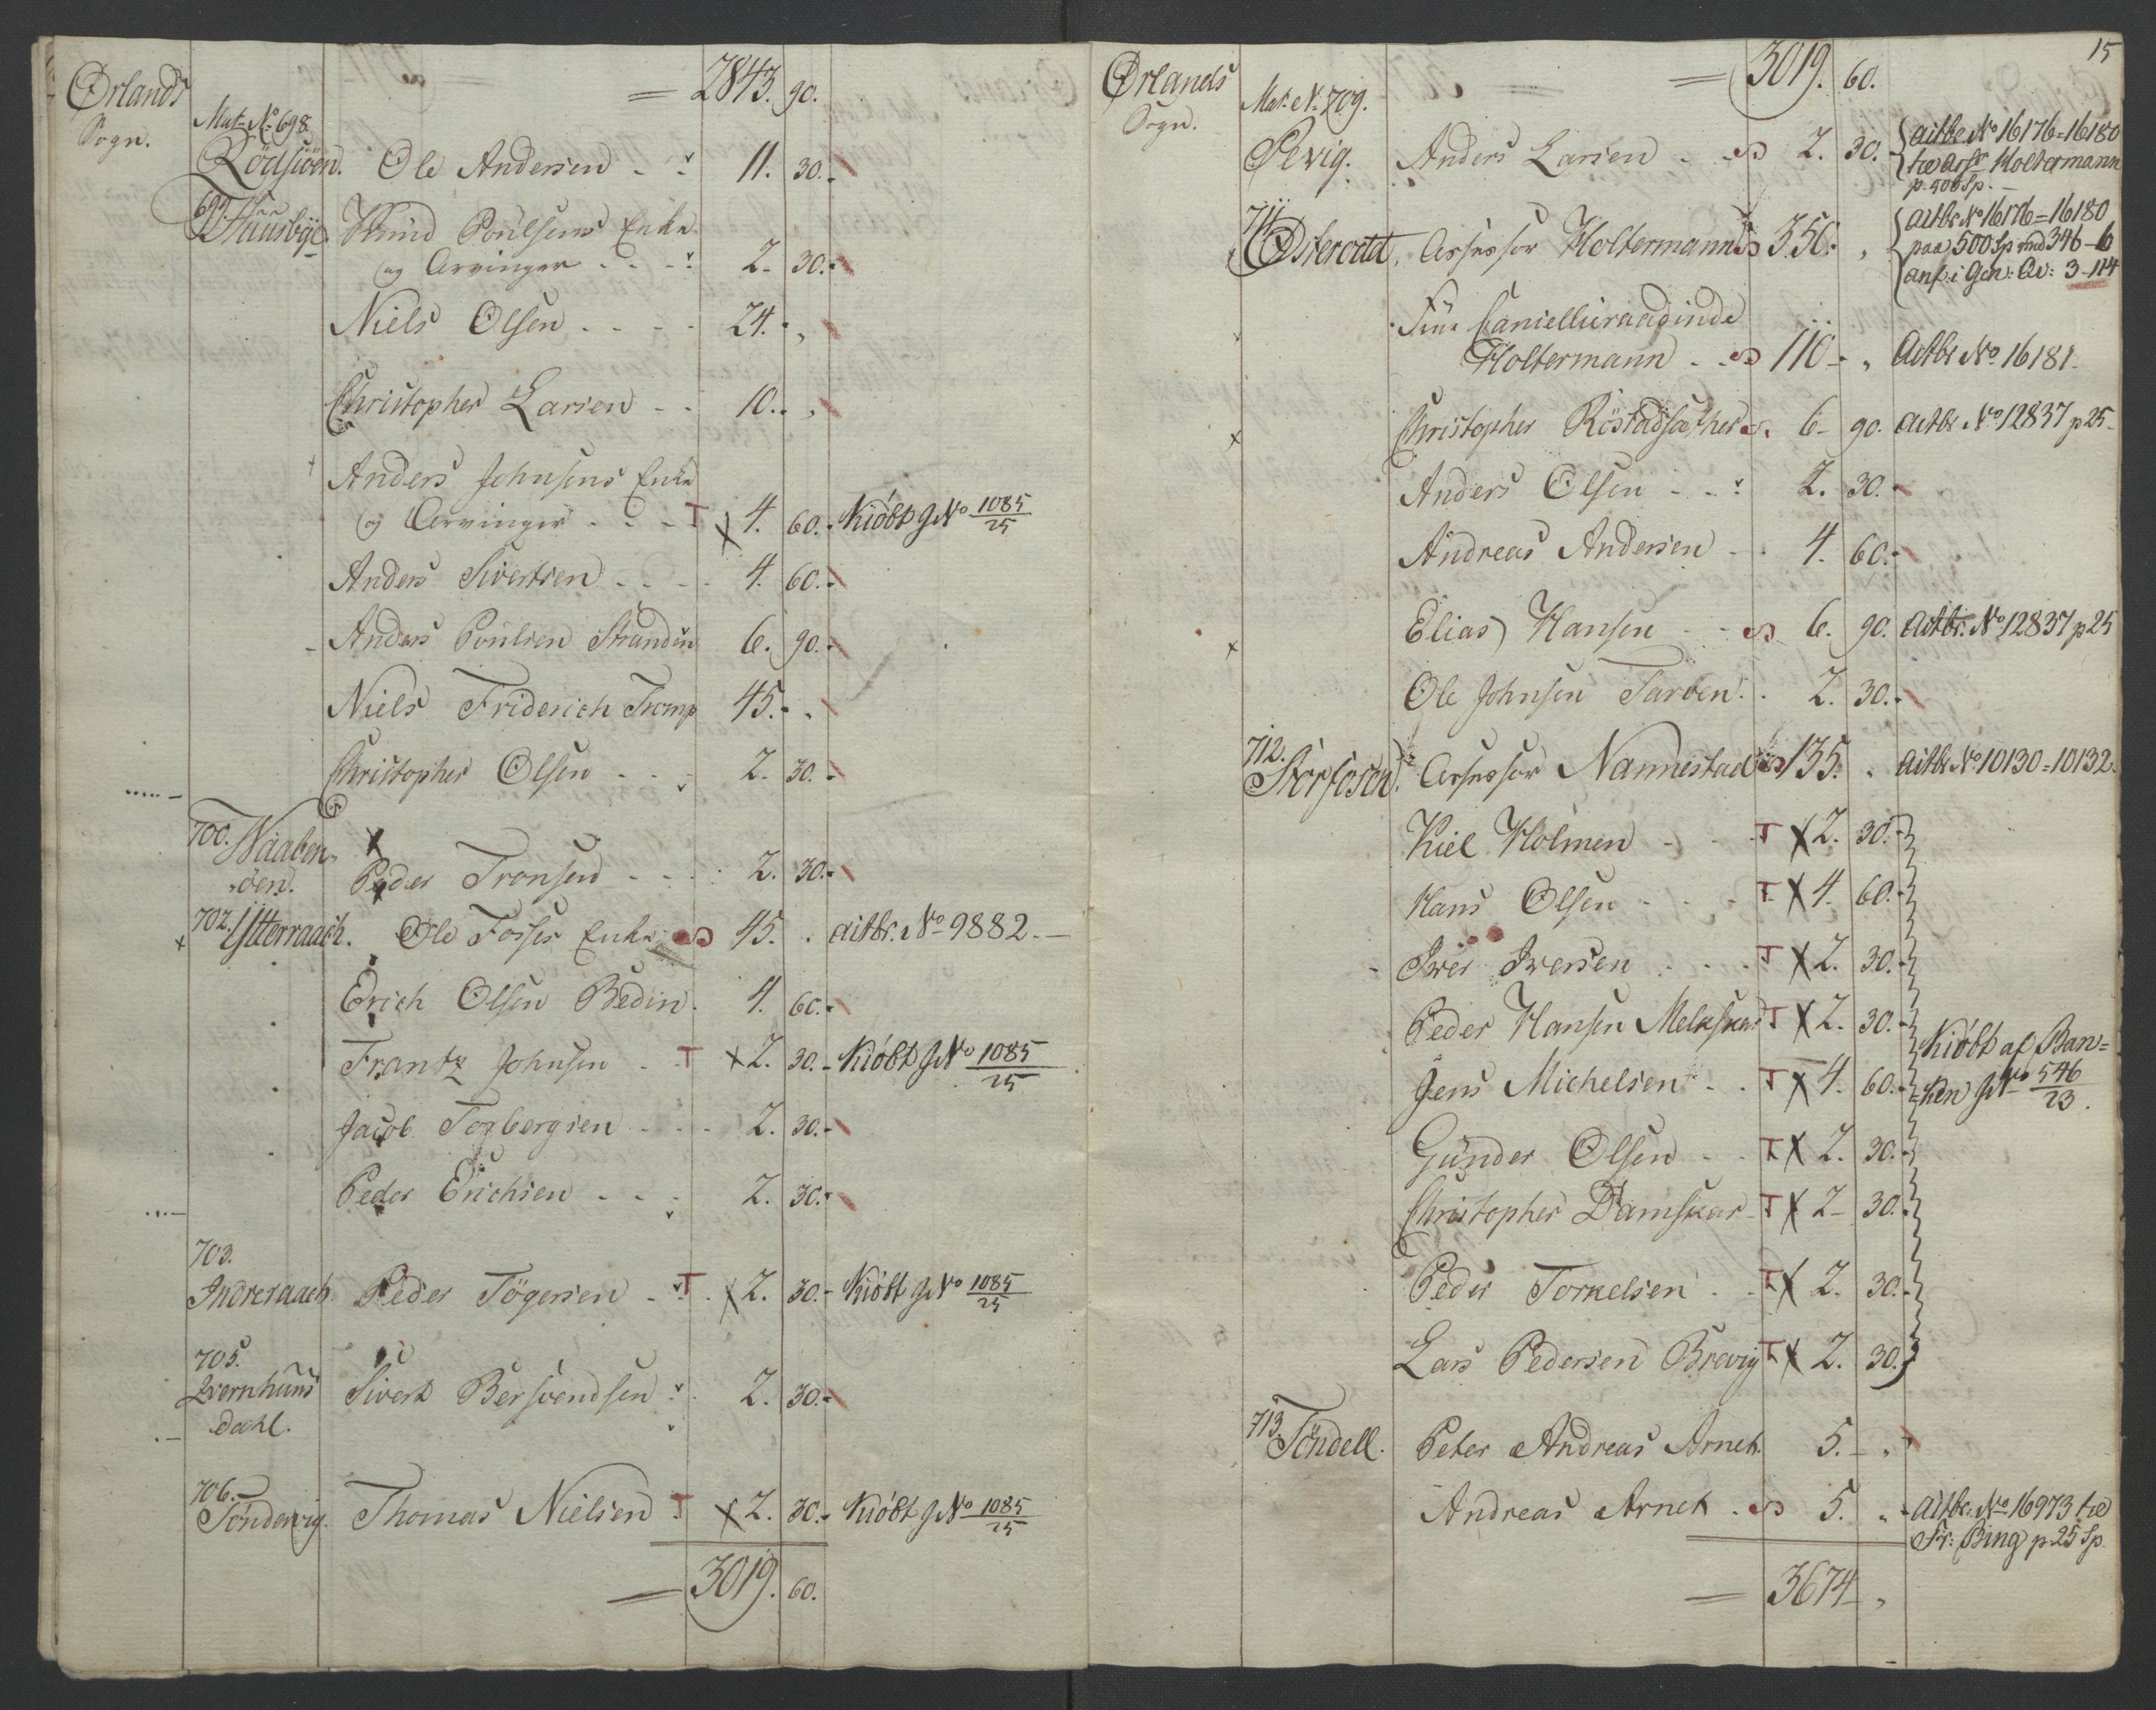 Ørlands
Sogn.
= 2843. 90.
Mat. No 698.
Rödsiöen. Ole Andersen - - 11. 30.
699.
Huusbÿe. Knud Poulsens Enke
og Arvinger - - - 2. 30.
Niels Olsen - - - - 24. "
Christopher Larsen - - 10. "
Anders Johnsens Enke
og Arvinger - - - T x 4. 60. Kiöbt J No 1085/25
Anders Sivertsen - - - - 4. 60.
Anders Poulsen Stranden 6. 90.
Niels Friderich Tromp 45. "
Christopher Olsen - - - 2. 30.
700. Naaben-
öen. Peder Tronsen - - - - 2. 30.
702. Ytterraach. Ole Fosses Enke 45. " aitbr. No 9882.
Erich Olsen Bedin. 4. 60.
Frantz Johnsen - - T x 2. 30. Kiöbt J No 1085/25
Jacob Torbergsen - - - 2. 30.
Peder Erichsen - - - 2. 30.
703.
Indreraach Peder Tögersen - T x 2. 30. Kiöbt J No 1085/25
705.
Qvernhuus
dahl. Sivert Bersvendsen 2. 30.
706.
Töndervig. Thomas Nielsen T x 2. 30. Kiöbt J No 1085/25
= 3019. 60.
15
Ørlands
Sogn.
= 3019. 60.
Mat. N. 709.
Olvig. Anders Larsen - - 2. 30. aitbr. No 16176=16180
Holtermann
p. 500 Sp.
711.
Østeraat. Assessor Holtermann 350. " aitbr No 16176=16180
paa 500 Sp med 346-6
anf. i Gen: 3-114
Frue Cancelliraadinde
Holtermann - - 110 - " Aitbr No 16181.
Christopher Röstadsæther 6 - 90. aitbr No 12837 p 25
Anders Olsen - - 2. 30.
Andreas Andersen - - 4. 60.
Elias Hansen - - 6. 90. Aitbr. No 12837 p 25
Ole Johnsen Tarven. 2. 30.
712.
Storfosen. Assessor Nannestad 135. " aitbr No 10130=10132.
Kiel Holmen - - - T x 2. 30.
Hans Olsen - - - T x 4. 60.
Iver Iversen - - - T x 2. 30.
Peder Hansen Melkskar T x 2. 30. Kiöbt af Ban=
Jens Michelsen - - T x 4. 60. =ken J No 546/23.
Gunder Olsen - - T x 2. 30.
Christopher Damskar - T x 2 - 30.
Peder Torkelsen - - T x 2. 30.
Lars Pedersen Brevig T x 2. 30.
713.
Töndell. Peter Andreas Arnet. 5. - "
Andreas Arnet - 5. " aitbr. No 16973
Fr: Bing p 25 Sp.
= 3674 - "